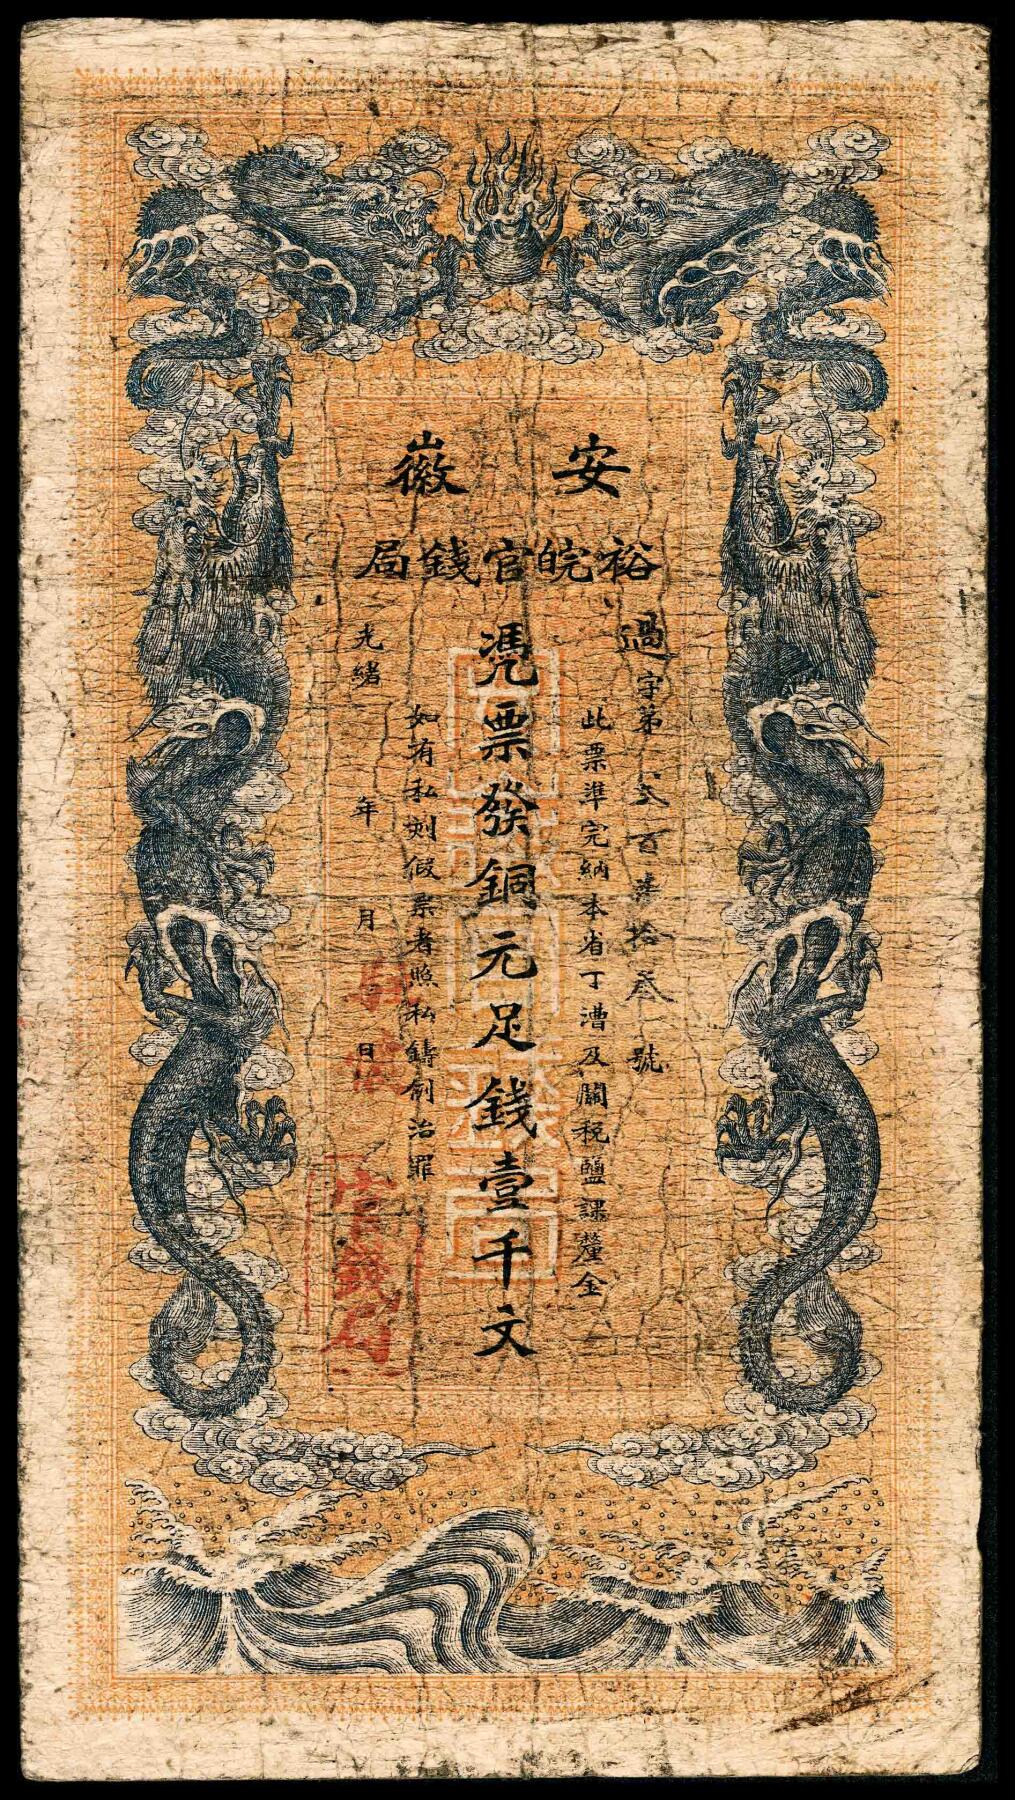 安徽
裕皖官錢局
過字第弍百柒拾叁號
此票準完納本省丁漕及關稅鹽課釐金
憑票發銅元足錢壹千文
如有私刻假票者照私鑄例治罪
光緒 年 月 日
官錢局